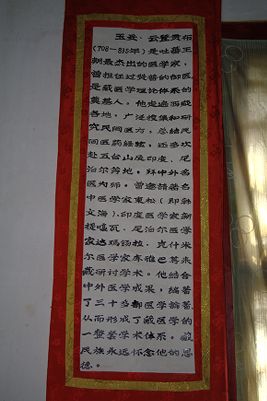 玉妥·云登贡布
(708—835年)是吐蕃王
朝最杰出的医学家,
曾担任过赞普的御医
是藏医学理论体系的
奠基人。他走遍西藏
各地,广泛搜集和研
究民间医方,总结民
间医药经验,还多次
赴五台山及印度、尼
泊尔等地,拜中外名
医为师。曾邀请著名
中医学家东松(即韩
文海)、印度医学家新
提嘎瓦、尼泊尔医学
家达玛锡拉、克什米
尔医学家库雅巴等来
藏研讨学术。他结合
中外医学成果,编著
了三十多部医学论著
从而形成了藏医学的
一整套学术体系。藏
民族永远怀念他的恩
德。